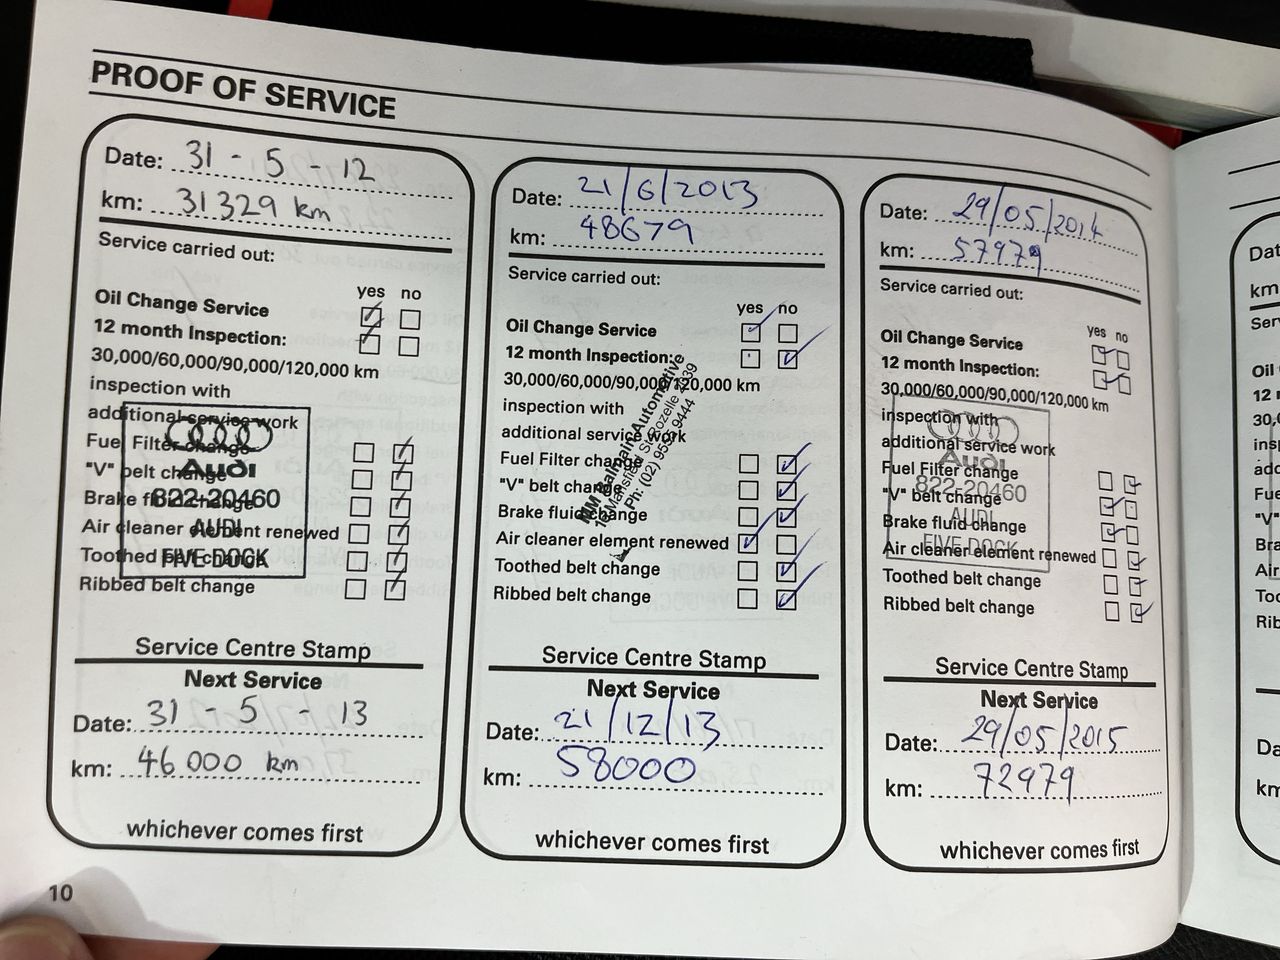 PROOF OF SERVICE
Date: 31 - 5 - 12
km: 31 329 km
Service carried out:
yes no
Oil Change Service
12 month Inspection:
30,000/60,000/90,000/120,000 km
inspection with
additional service work
Fuel Filter change
"V" belt change
Brake fluid change
Air cleaner element renewed
Toothed belt change
Ribbed belt change
Audi
822-20460
AUDI
FIVE DOCK
Service Centre Stamp
Next Service
Date: 31 - 5 - 13
km: 46 000 km
whichever comes first
Date: 21/6/2013
km: 48679
Service carried out:
yes no
Oil Change Service
12 month Inspection:
30,000/60,000/90,000/120,000 km
inspection with
additional service work
Fuel Filter change
"V" belt change
Brake fluid change
Air cleaner element renewed
Toothed belt change
Ribbed belt change
MM Balmain Automotive
Mansfield St Rozelle 2039
Ph: (02) 9444
Service Centre Stamp
Next Service
Date: 21/12/13
km: 58000
whichever comes first
Date: 29/05/2014
km: 57979
Service carried out:
yes no
Oil Change Service
12 month Inspection:
30,000/60,000/90,000/120,000 km
inspection with
additional service work
Fuel Filter change
"V" belt change
Brake fluid change
Air cleaner element renewed
Toothed belt change
Ribbed belt change
Audi
822-20460
AUDI
FIVE DOCK
Service Centre Stamp
Next Service
Date: 29/05/2015
km: 72979
whichever comes first
10